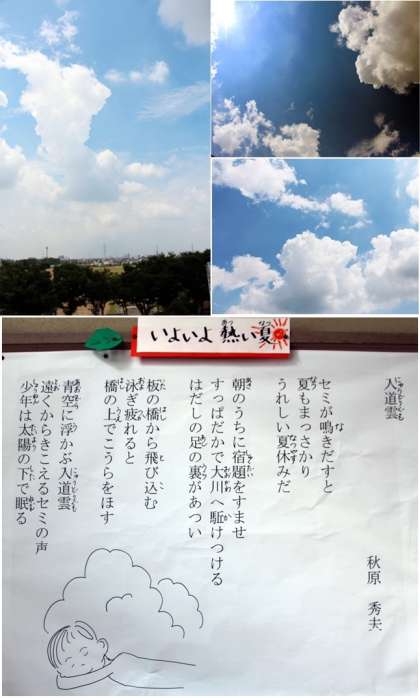 いよいよ 熱い夏
入道雲
秋原 秀夫
セミが鳴きだすと
夏もまっさかり
うれしい夏休みだ
朝のうちに宿題をすませ
すっぱだかで大川へ駈けつける
はだしの足の裏があつい
板の橋から飛び込む
泳ぎ疲れると
橋の上でこうらをほす
青空に浮かぶ入道雲
遠くからきこえるセミの声
少年は太陽の下で眠る